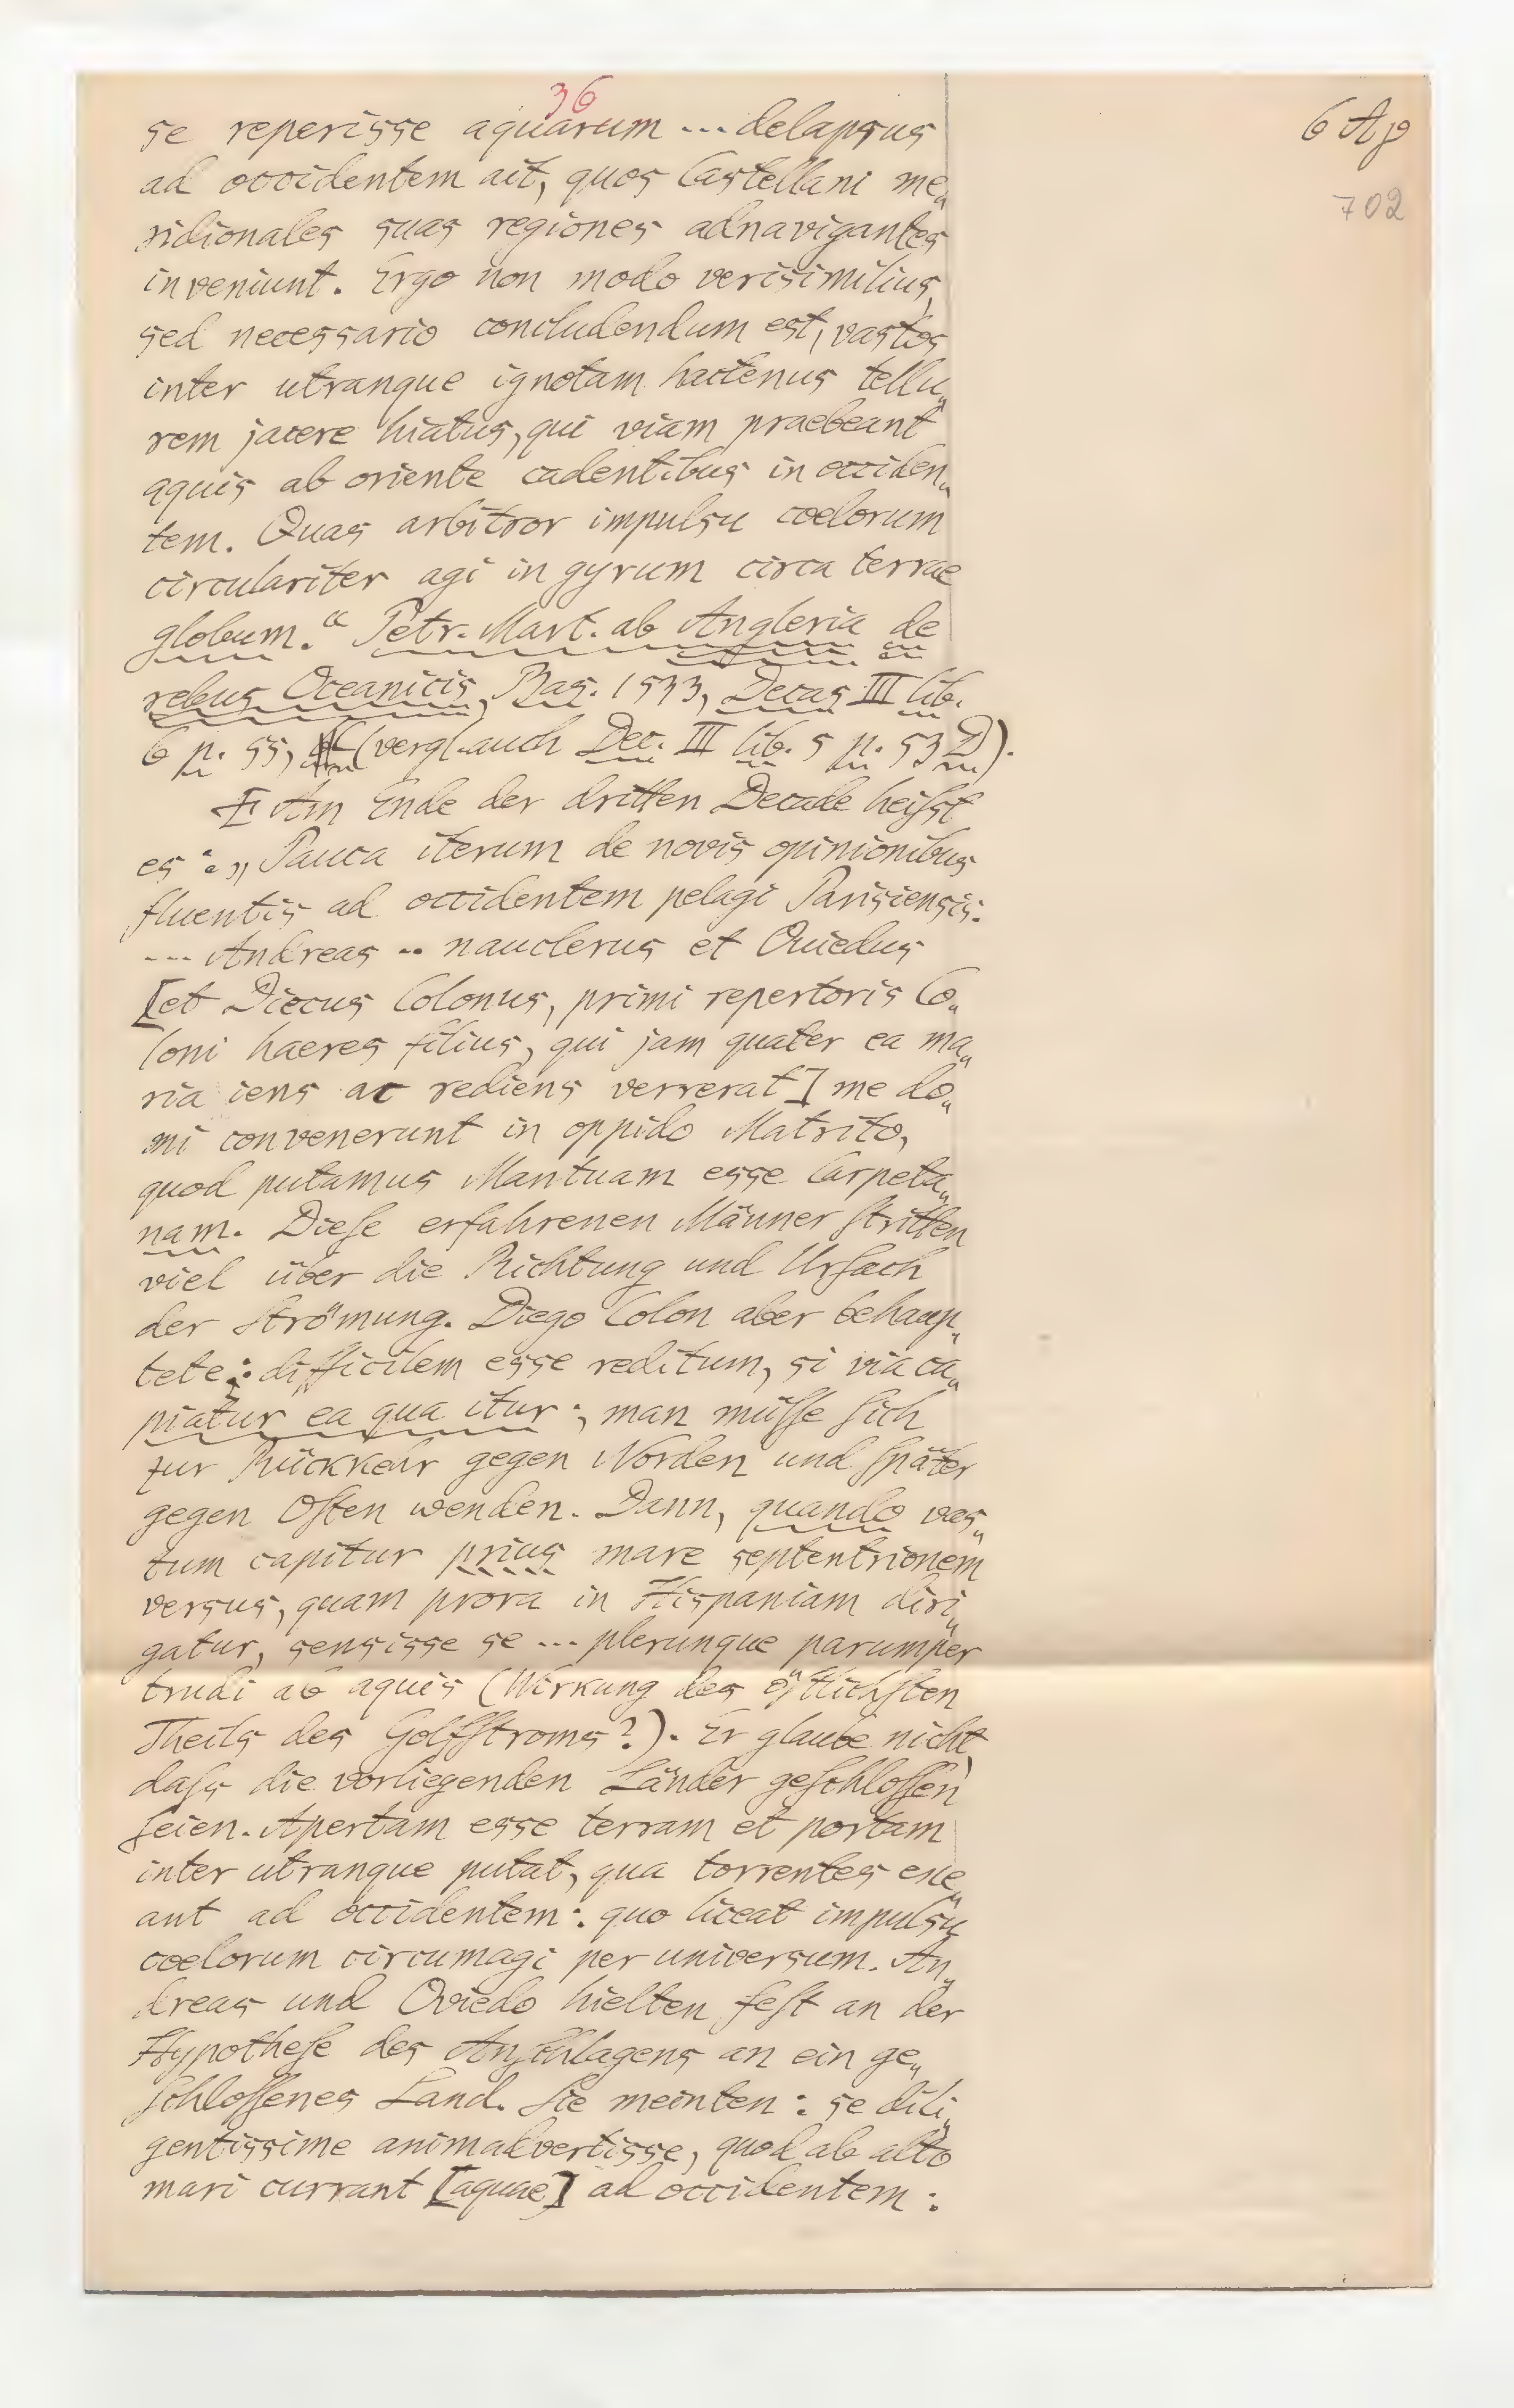 36
6 Ap
702
se reperisse aquarum ... delapsus
ad occidentem ait, quos Castellani me„
ridionales suas regiones adnavigantes
inveniunt. Ergo non modo verisimilius,
sed necessario concludendum est, vastos
inter utranque ignotam hactenus tellu„
rem jacere hiatus, qui viam praebeant
aquis ab oriente cadentibus in occiden„
tem. Quas arbitror impulsu coelorum
circulariter agi in gyrum circa terrae
globum.“ Petr. Mart. ab Angleria de
rebus Oceanicis, Bas. 1533, Decas III lib.
6 p. 55, (vergl. auch Dec. III lib. 5 p. 53 D).
Am Ende der dritten Decade heiſst
es: „Pauca iterum de novis opinionibus
fluentis ad occidentem pelagi Parisiensis.
--- Andreas .. nauclerus et Ouiedus
[et Diecus Colonus, primi repertoris Co„
loni haeres filius, qui jam quater ea ma„
ria iens ac rediens verrerat] me do„
mi convenerunt in oppido Matrito,
quod putamus Mantuam esse Carpeta„
nam. Dieſe erfahrenen Männer ſtritten
viel über die Richtung und Urſach
der Strömung. Diego Colon aber behaup„
tete: difficilem esse reditum, si via ca„
piatur ea qua itur; man müſſe ſich
zur Rückkehr gegen Norden und ſpäter
gegen Oſten wenden. Dann, quando vas„
tum capitur prius mare septentrionem
versus, quam prora in Hispaniam diri„
gatur, sensisse se ... plerunque parumper
trudi ab aquis (Wirkung des öſtlichſten
Theils des Golfſtroms?). Er glaube nicht
daſs die vorliegenden Länder geſchloſſen
ſeien. Apertam esse terram et portam
inter utranque putat, qua torrentes exe„
ant ad occidentem: quo liceat impulsu
coelorum circumagi per universum. An„
dreas und Oviedo hielten feſt an der
Hypotheſe des Anſchlagens an ein ge„
ſchloſſenes Land. Sie meinten: se dili„
gentissime animadvertisse, quod ab alto
mari currant [aquae] ad occidentem: